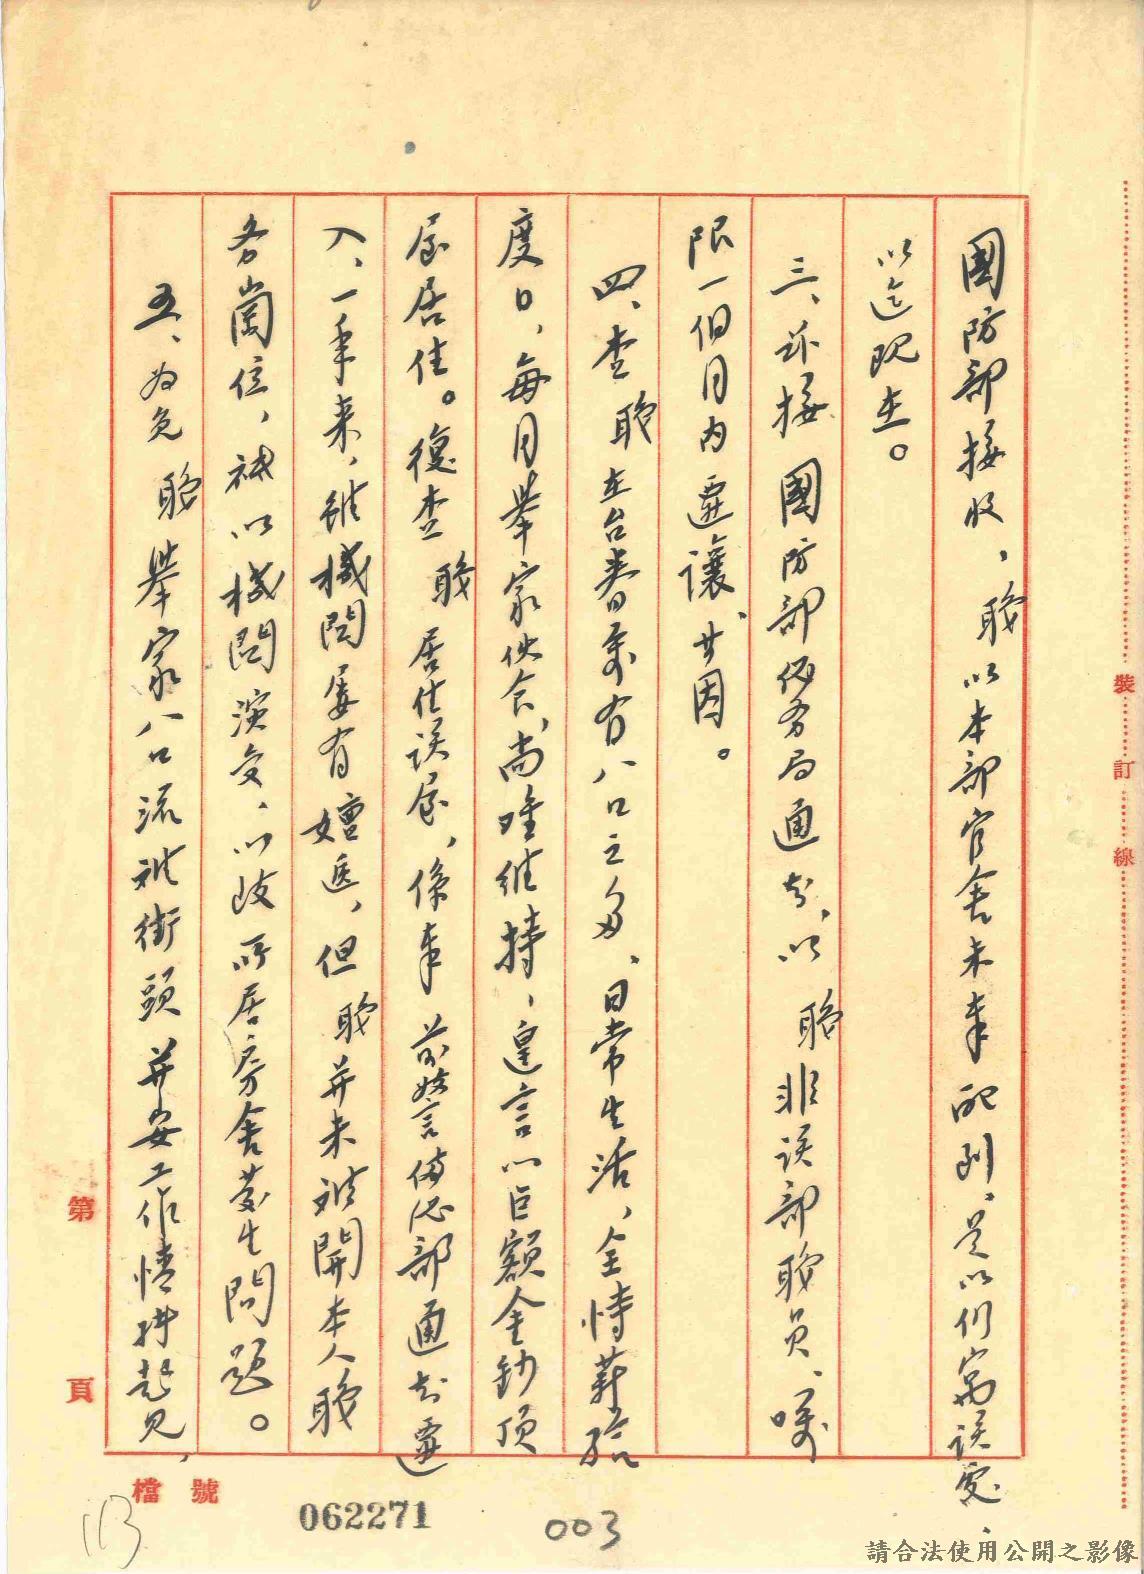 國防部接收，職以本部官舍未奉配到，是以仍寓該處，
以迄現在。
三、茲接 國防部總務局通知，以 職非該部職員、囑
限一個月內遷讓、廿因。
四、查 職在台眷屬有八口之多、日常生活，全恃薪給
度日，每月舉家伙食，尚難維持，遑言以巨額金鈔頂
屋居住。復查 職居住該屋，係奉 前警備總部通知遷
入，一年來，雖機関屢有嬗遞，但 職并未被開本人職
務崗位，祇以機関演变，以致所居房舍發生問題。
五、為免 職舉家八口流於街頭并安工作情緒起見，
裝
訂
線
第
頁
檔 號
062271
003
113
請合法使用公開之影像